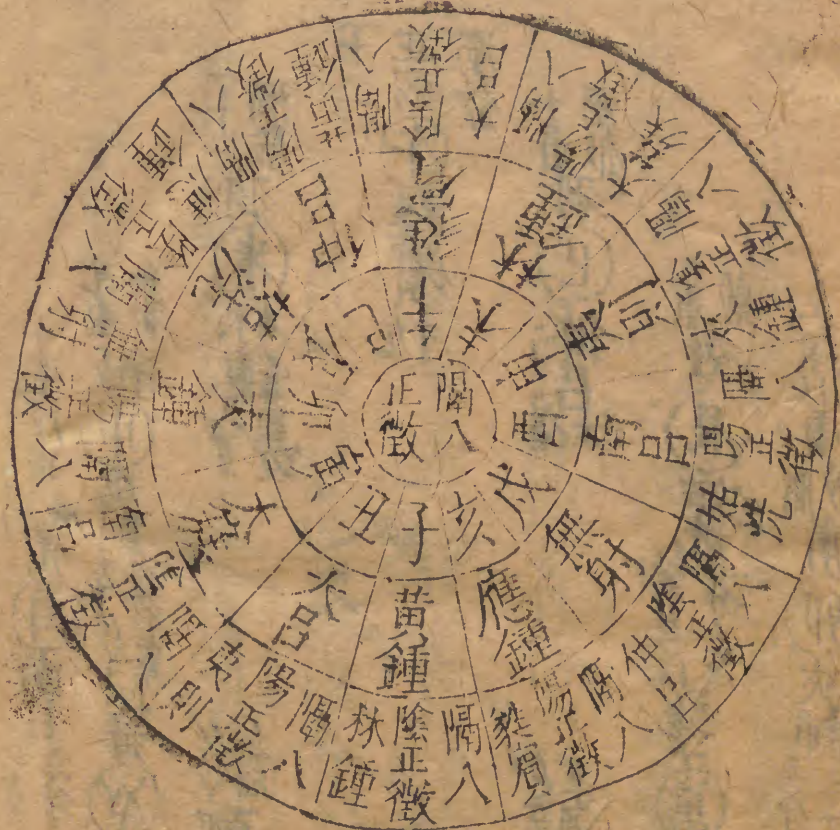 隔八
正徵
子
丑
寅
卯
辰
巳
午
未
申
酉
戌
亥
黄鍾
大呂
太蔟
夾鍾
姑洗
仲呂
蕤賓
林鍾
夷則
南呂
無射
應鍾
隔八
陰正徵
林鍾
隔八
陽正徵
夷則
隔八
陰正徵
南呂
隔八
陽正徵
無射
隔八
陰正徵
應鍾
隔八
陽正徵
黄鍾
隔八
陰正徵
大呂
隔八
陽正徵
太蔟
隔八
陰正徵
夾鍾
隔八
陽正徵
姑洗
隔八
陰正徵
仲呂
隔八
陽正徵
蕤賓